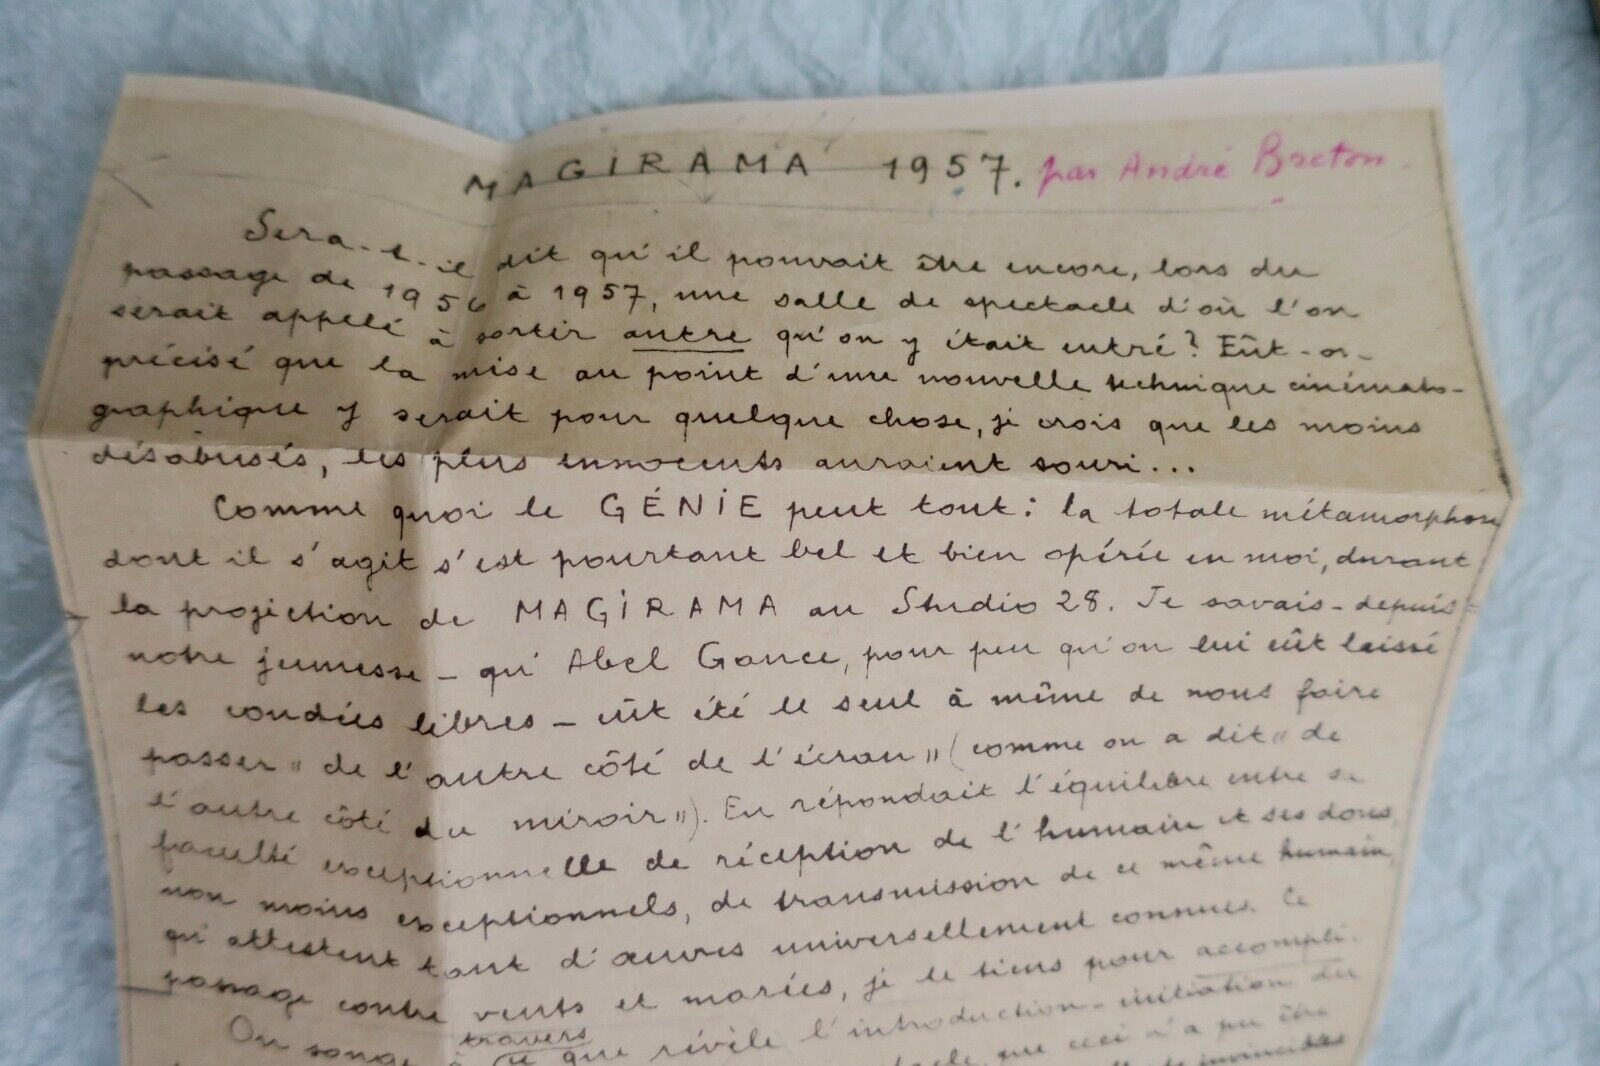 MAGIRAMA 1957. par André Breton.
Sera-t-il dit qu'il pouvait être encore, lors du
passage de 1956 à 1957, une salle de spectacle d'où l'on
serait appelé à sortir autre qu'on y était entré? Eût-on
précisé que la mise au point d'une nouvelle technique cinémato-
graphique y serait pour quelque chose, je crois que les moins
désabusés, les plus innocents auraient souri...
Comme quoi le GÉNIE peut tout: la totale métamorphose
dont il s'agit s'est pourtant bel et bien opérée en moi, durant
la projection de MAGIRAMA au Studio 28. Je savais - depuis
notre jeunesse - qu'Abel Gance, pour peu qu'on lui eût laissé
les coudées libres - eût été le seul à même de nous faire
passer "de l'autre côté de l'écran" (comme on a dit "de
l'autre côté du miroir"). En répondait l'équilibre entre sa
faculté exceptionnelle de réception de l'humain et ses dons,
non moins exceptionnels, de transmission de ce même humain,
qu'attestent tant d'œuvres universellement connues. Ce
passage contre vents et marées, je le tiens pour accompli.
On songe à travers ce que révèle l'introduction-initiation du
que ceci n'a pu être
invincibles